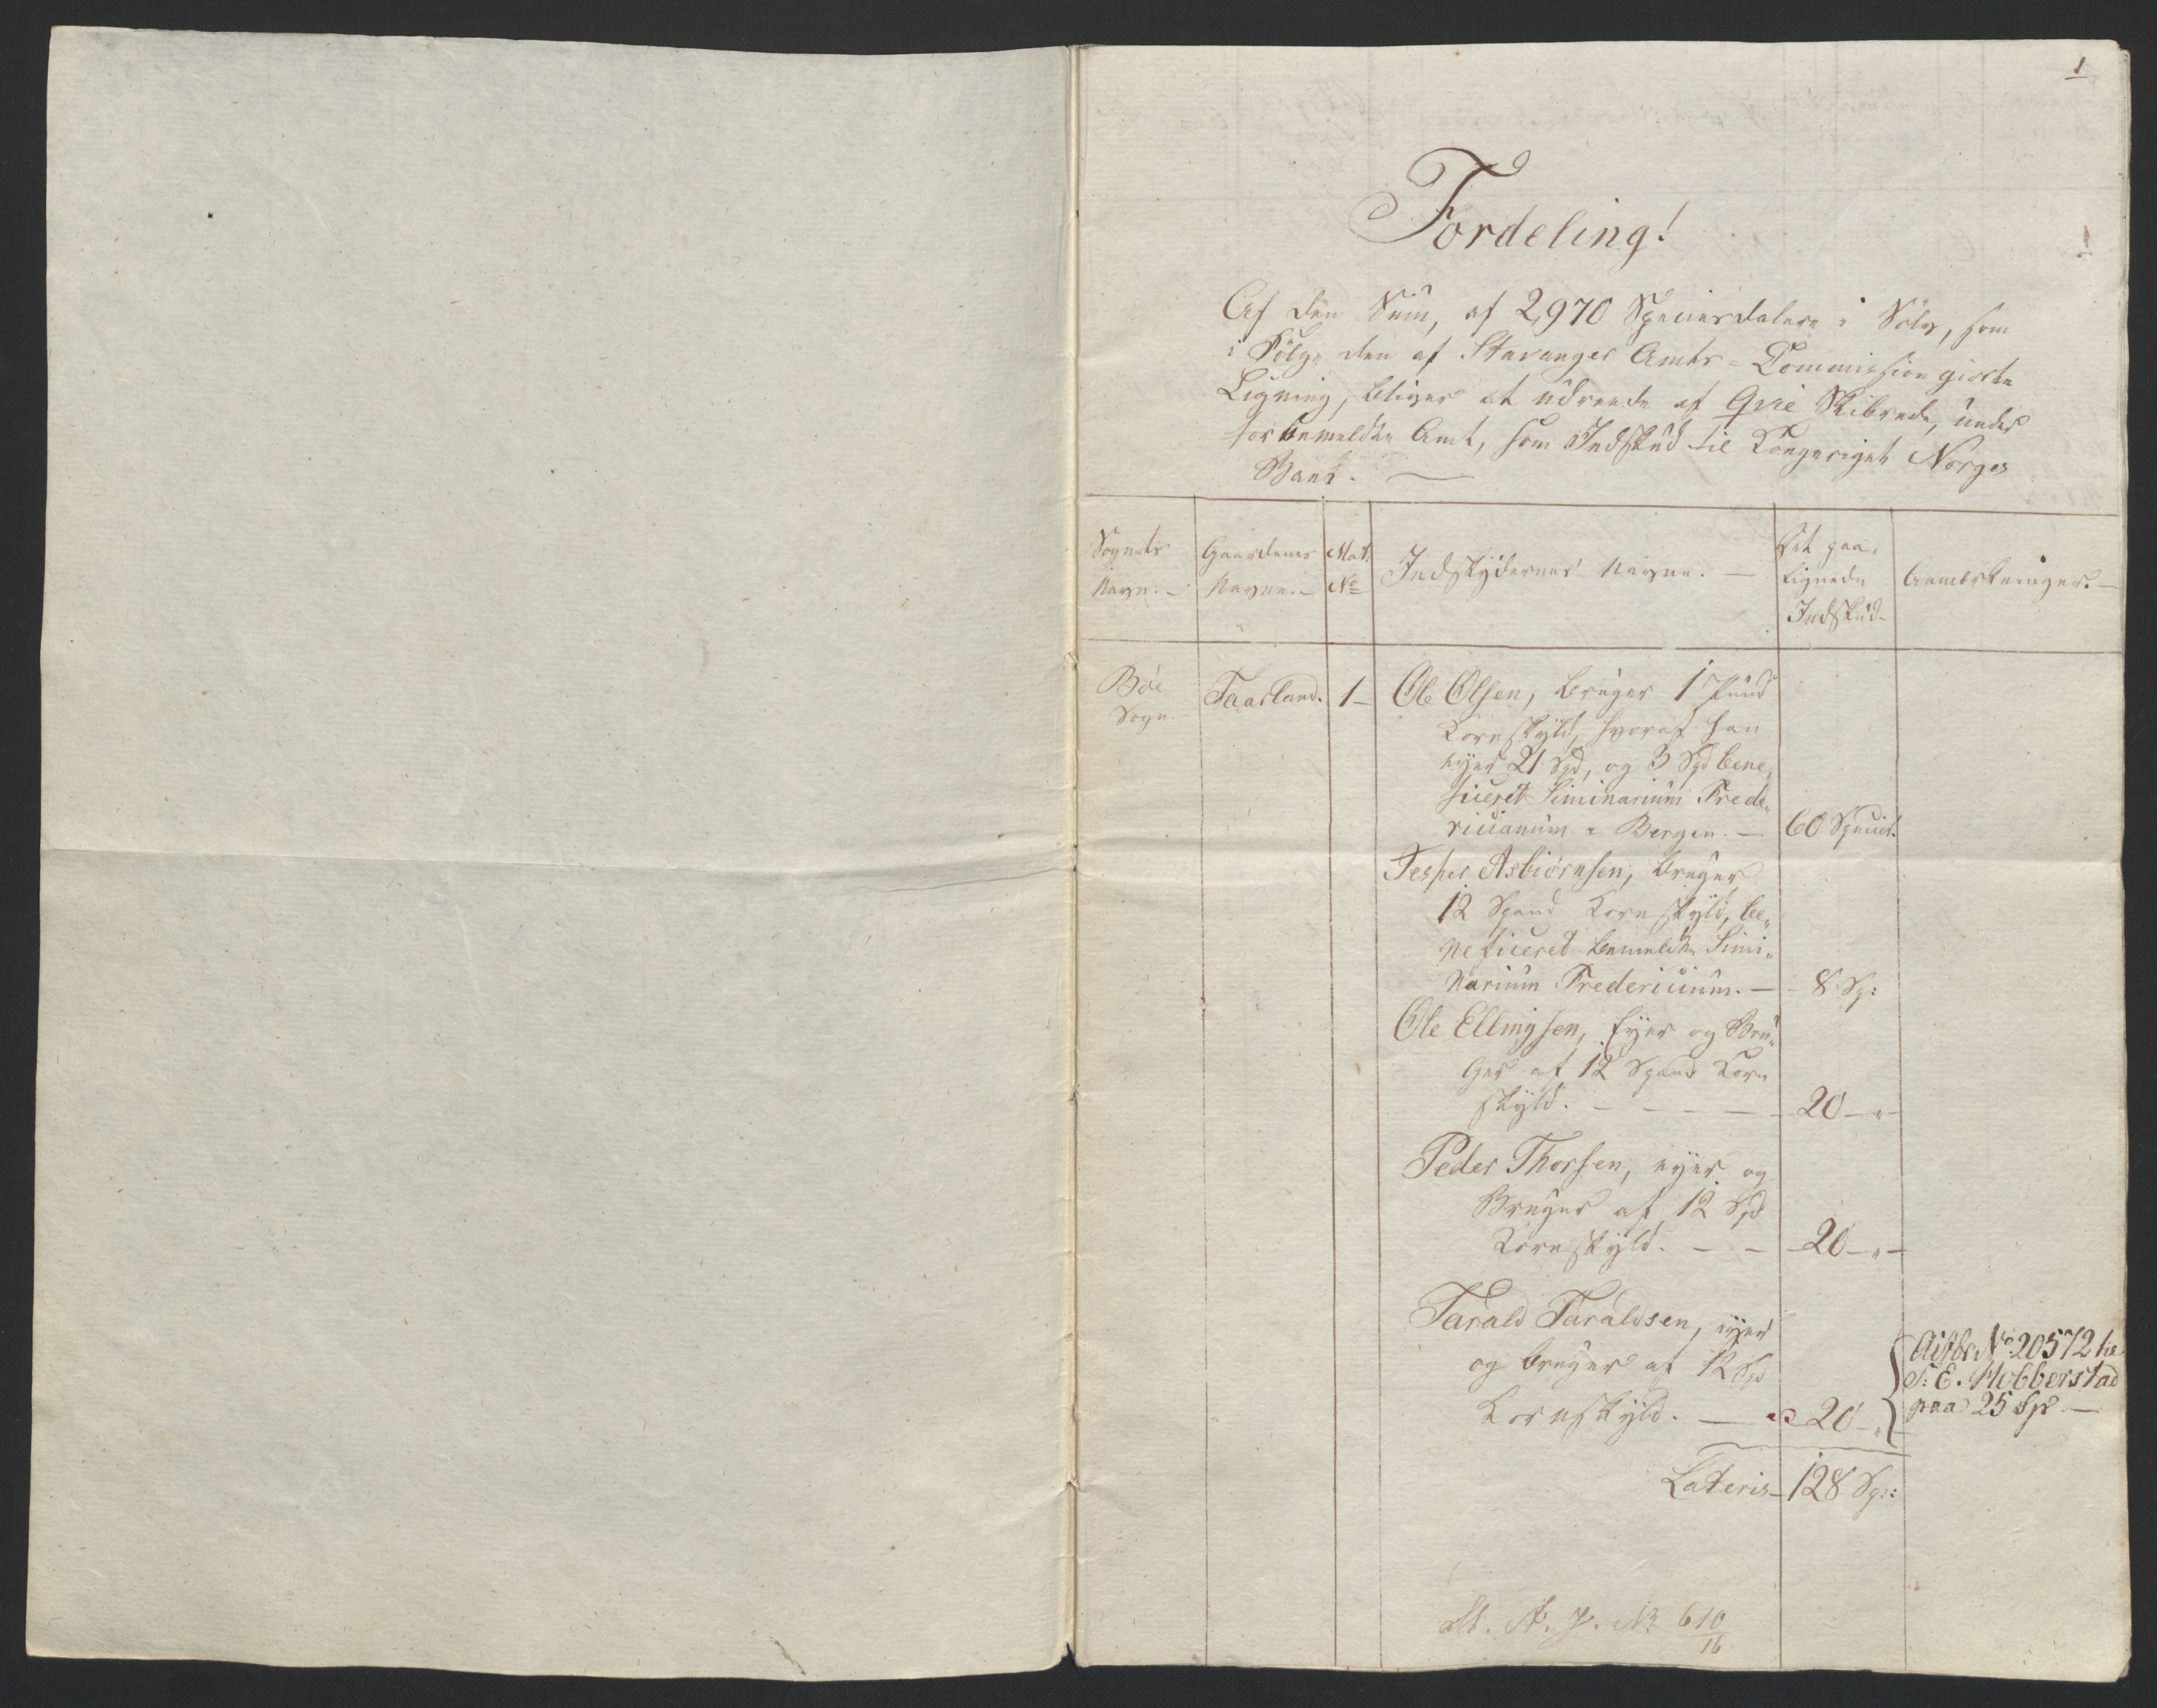 1
Fordeling!
Af den Sum, af 2,970 Speciesdalere i Sölv, som
i Fölge den af Stavanger Amts-Commission giorte
Ligning, bliver at udreede af Qvie Skibrede, under
forbemeldte Amt, som Indskud til Kongeriget Norges
Bank. —
Sognets
Navn. -
Gaardenes
Navne. -
Mat.
No
Indskydernes Navne. —
Det paa-
lignede
Indskud-
Anmerkninger. —
Böe
Sogn
Taarland.
1 -
Ole Olsen, bruger 1 Pund
Kornskyld, hvoraf han
eyer 21 Spd, og 3 Spd bene„
ficeret Siminarium Frede„
ricianum i Bergen. —
60 Speciet.
Jesper Asbiörnsen, bruger
12 Spand Kornskyld, be„
neficeret bemeldte Simi„
narium Fredericium. —
8 Sp:
Ole Ellingsen, Eyer og Bru„
ger af 12 Spand Korn
skyld. - - - - -
20 - „ -
Peder Thorsen, eyer og
Bruger af 12 Spd
Kornskyld. - -
20 - „ -
Tarald Taraldsen, eyer
og bruger af 12 Spd
Kornskyld. —
20 - „
No 20572
E. Hobberstad
paa 25 Sp —
Lateris - 128 Sp:
No 610
16